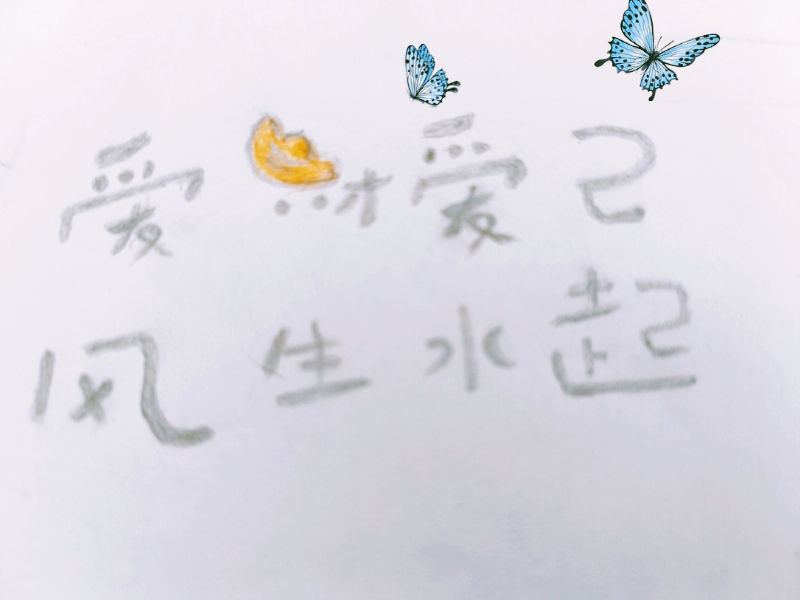 爱财爱己
风生水起